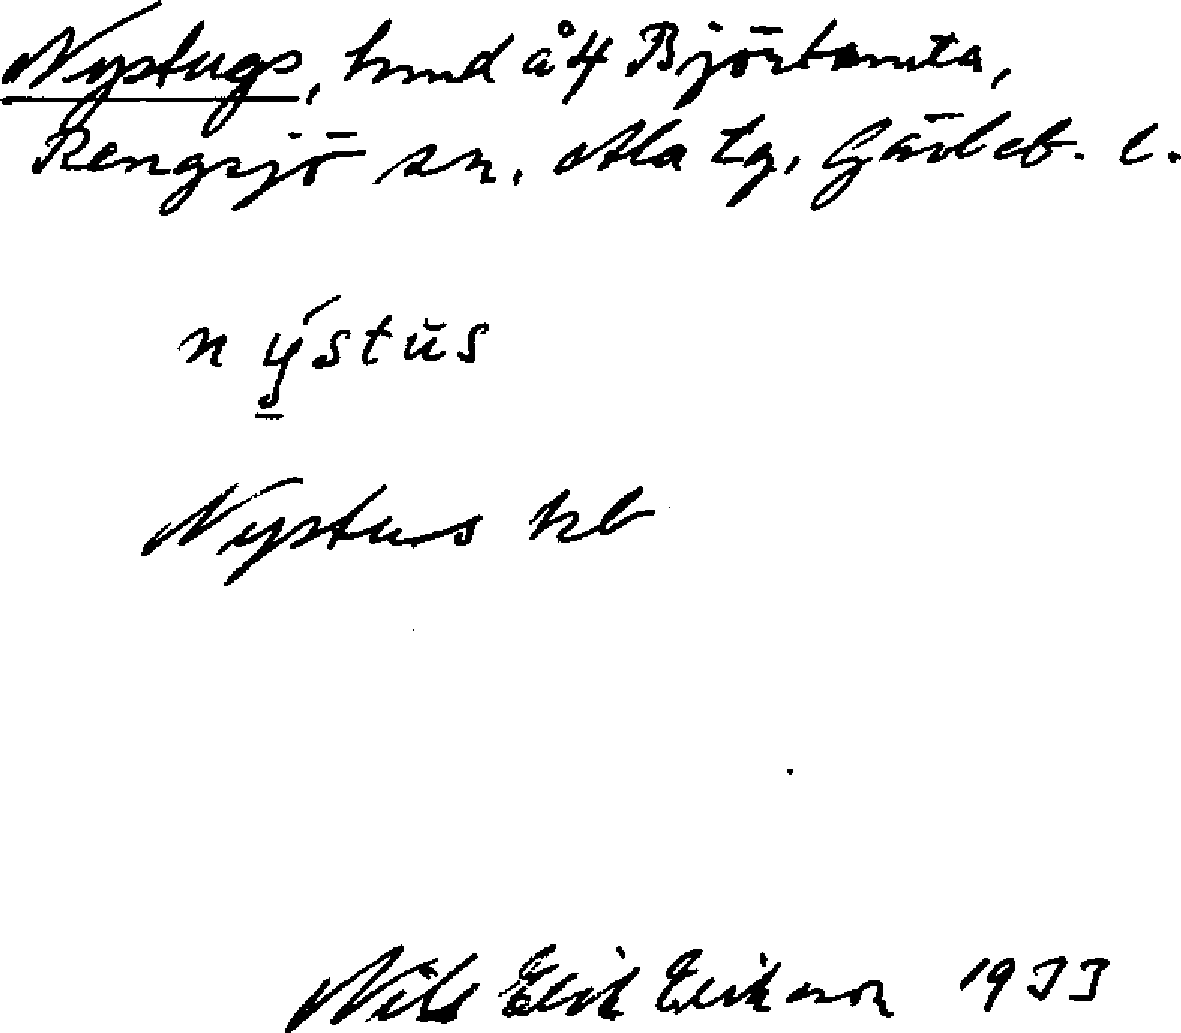 Nystugs, hmd å 4 Björtomta,
Rengsjö sn. Ala tg, Gävleb. l.
nýstŭs
Nystus kb
Nils Erik Erikson 1933